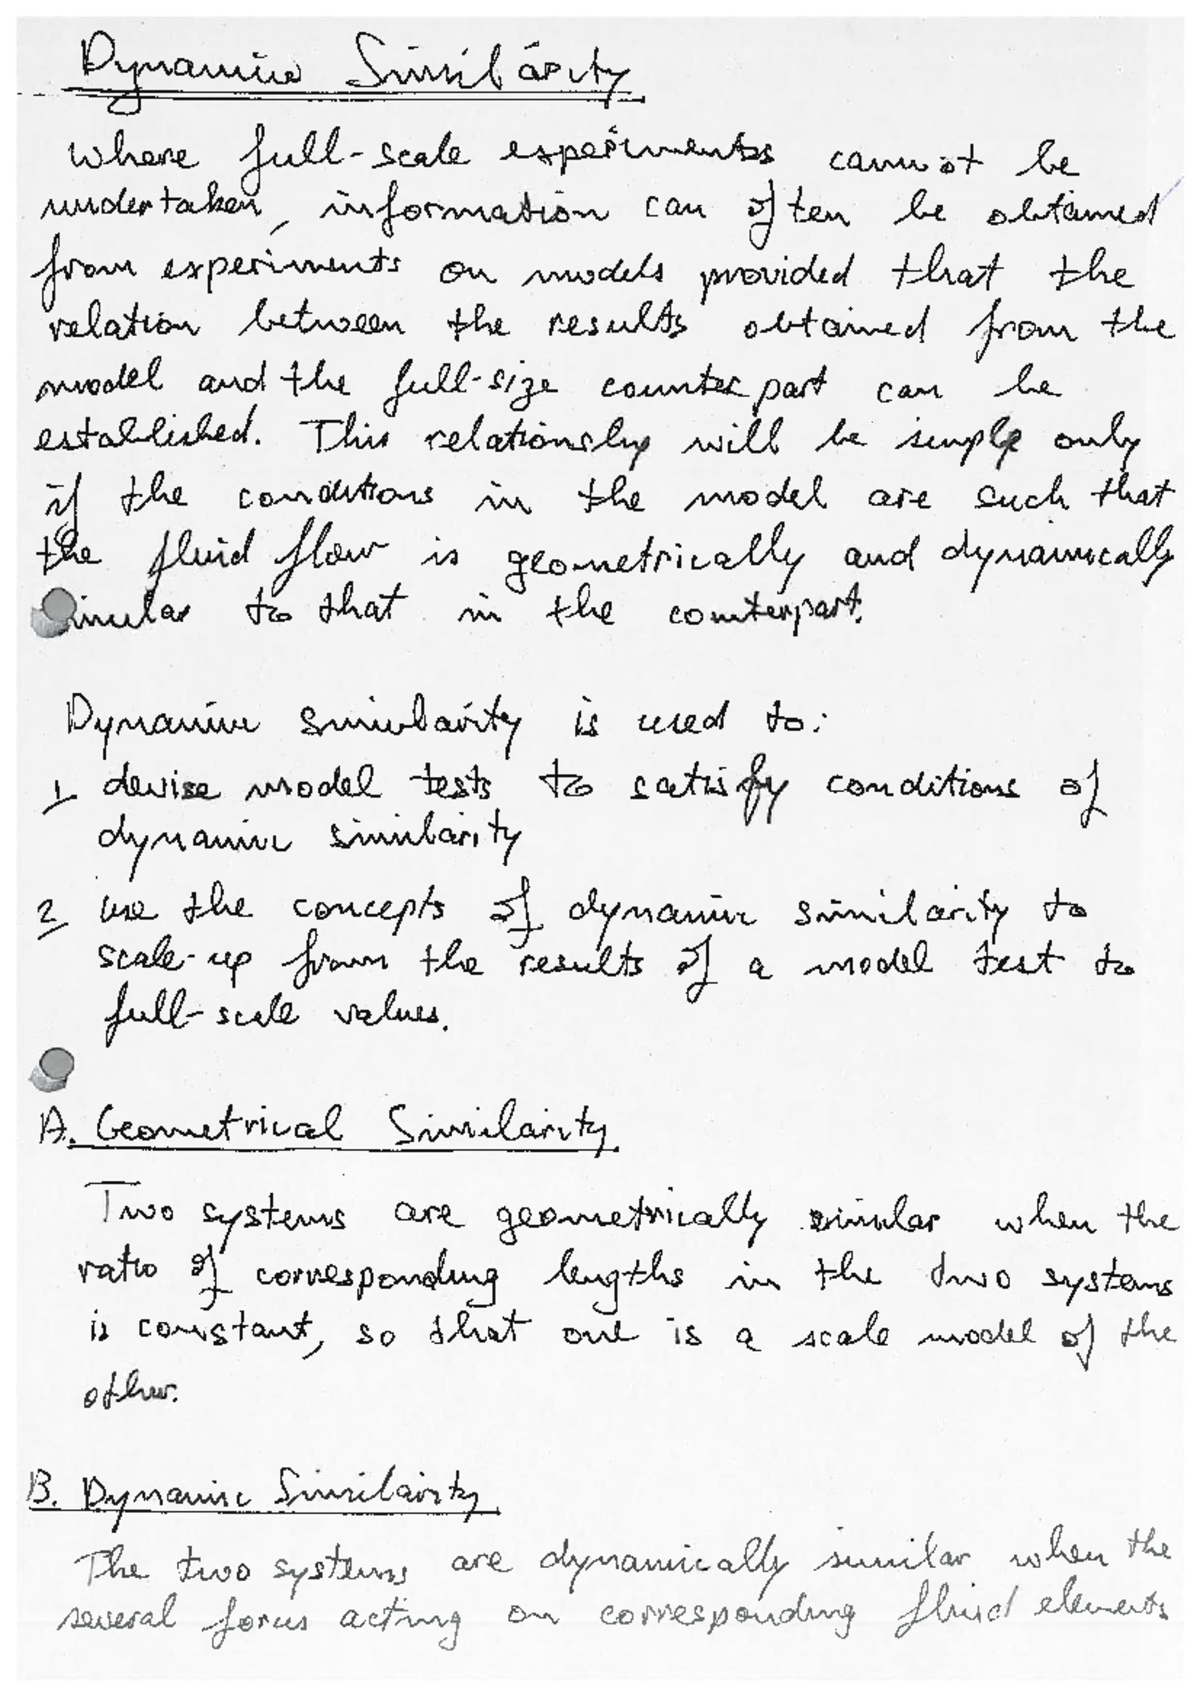 Dynamic Similarity
Where full-scale experiments cannot be
undertaken, information can often be obtained
from experiments on models provided that the
relation between the results obtained from the
model and the full-size counterpart can be
established. This relationship will be simple only
if the conditions in the model are such that
the fluid flow is geometrically and dynamically
similar to that in the counterpart.
Dynamic similarity is used to:
1 devise model tests to satisfy conditions of
dynamic similarity
2 use the concepts of dynamic similarity to
scale-up from the results of a model test to
full-scale values.
A. Geometrical Similarity.
Two systems are geometrically similar when the
ratio of corresponding lengths in the two systems
is constant, so that one is a scale model of the
other.
B. Dynamic Similarity.
The two systems are dynamically similar when the
several forces acting on corresponding fluid elements